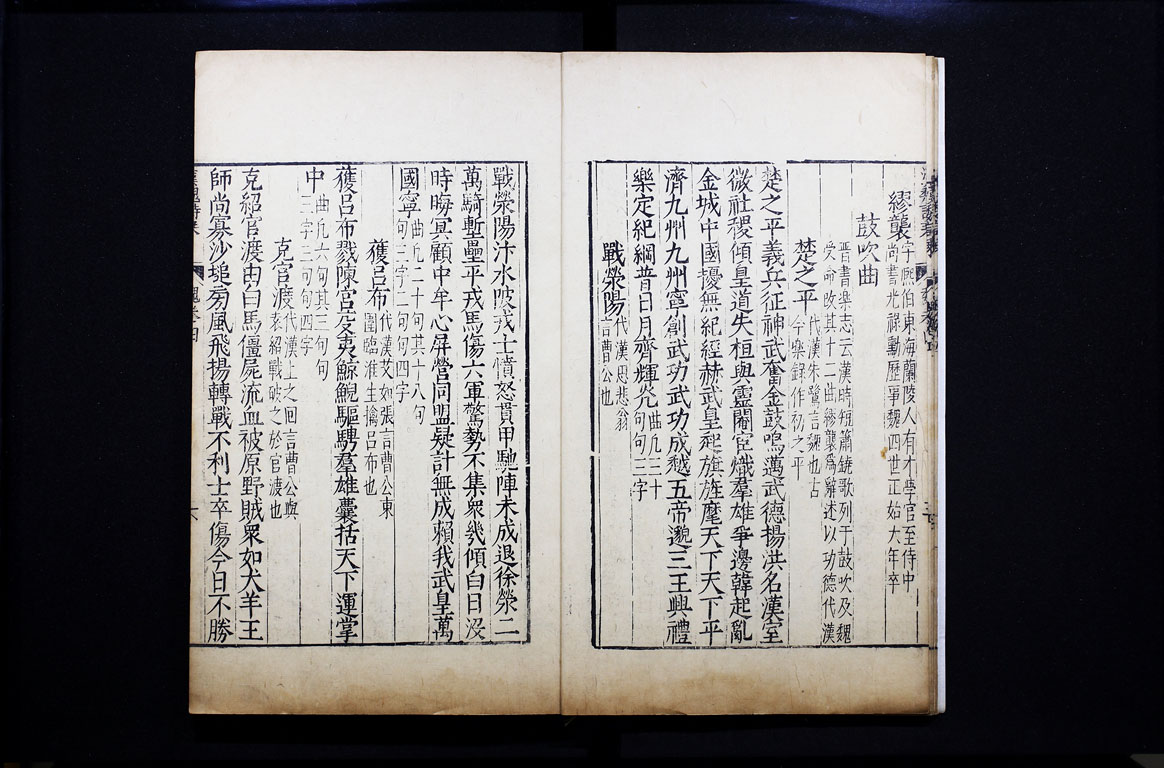 繆襲字熙伯東海蘭陵人有才學官至侍中
尚書光祿勳歷事魏四世正始六年卒
鼓吹曲
晉書樂志云漢時短簫鐃歌列于鼓吹及魏
受命改其十二曲繆襲爲辭述以功德代漢
楚之平代漢朱鷺言魏也古
今樂録作初之平
楚之平義兵征神武奮金鼓鳴邁武德揚洪名漢室
微社稷傾皇道失桓與靈閹宦熾羣雄爭邊韓起亂
金城中國擾無紀經赫武皇起旗旌麾天下天下平
濟九州九州寧創武功武功成越五帝邈三王興禮
樂定紀綱普日月齊輝光曲凢三十
句句三字
戰滎陽代漢思悲翁
言曹公也
戰滎陽汴水陂戎士憤怒貫甲馳陣未成退徐滎二
萬騎塹壘平戎馬傷六軍驚勢不集衆幾傾白日没
時晦冥顧中牟心屏營同盟疑計無成賴我武皇萬
國寧曲凢二十句其十八句
句三字二句句四字
獲呂布代漢艾如張言曹公東
圍臨淮生擒呂布也
獲呂布戮陳宮芟夷鯨鯢驅騁羣雄囊括天下運掌
中曲凢六句其三句句
三字三句句四字
克官渡代漢上之回言曹公與
袁紹戰破之於官渡也
克紹官渡由白馬僵屍流血被原野賊衆如犬羊王
師尚寡沙塠旁風飛揚轉戰不利士卒傷今日不勝